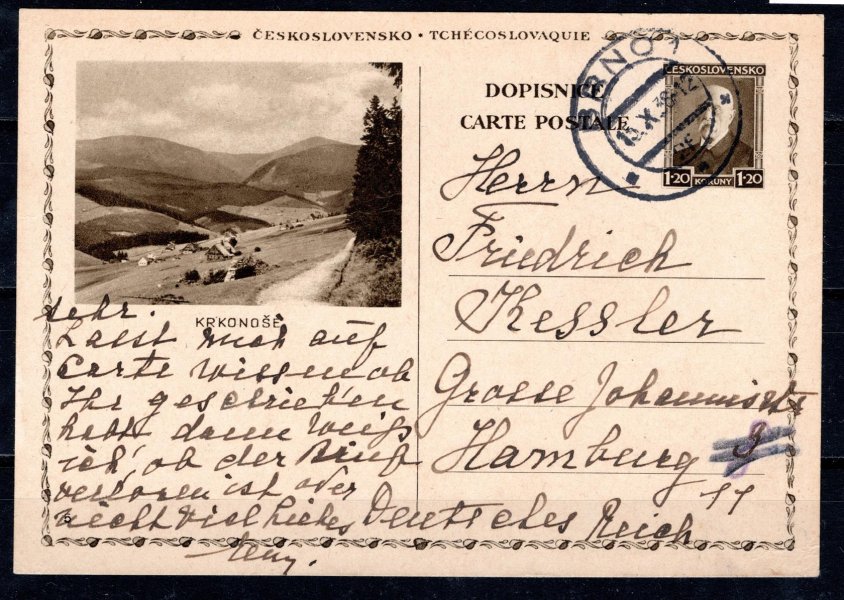 ČESKOSLOVENSKO • TCHÉCOSLOVAQUIE
DOPISNICE
CARTE POSTALE
BRNO 1
ČESKOSLOVENSKO
1·20 KORUNY 1·20
KRKONOŠE
Herrn
Friedrich
Kessler
Grosse Johannisstr
Hamburg 3
11
Deutsches Reich
sehr.
Lasst mich auf
Carte wissen ob
Ihr geschrieben
habt dann weiss
ich, ob der Brief
verloren ist oder
nicht viel liebes